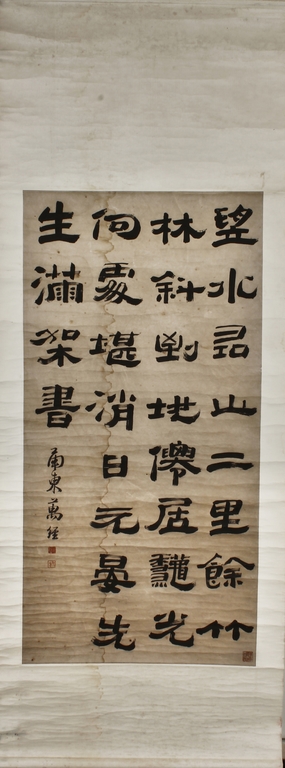 朢水尋山二里餘竹
林斜到地僊居龝光
何處堪消日元晏先
生滿架書
甬東萬經